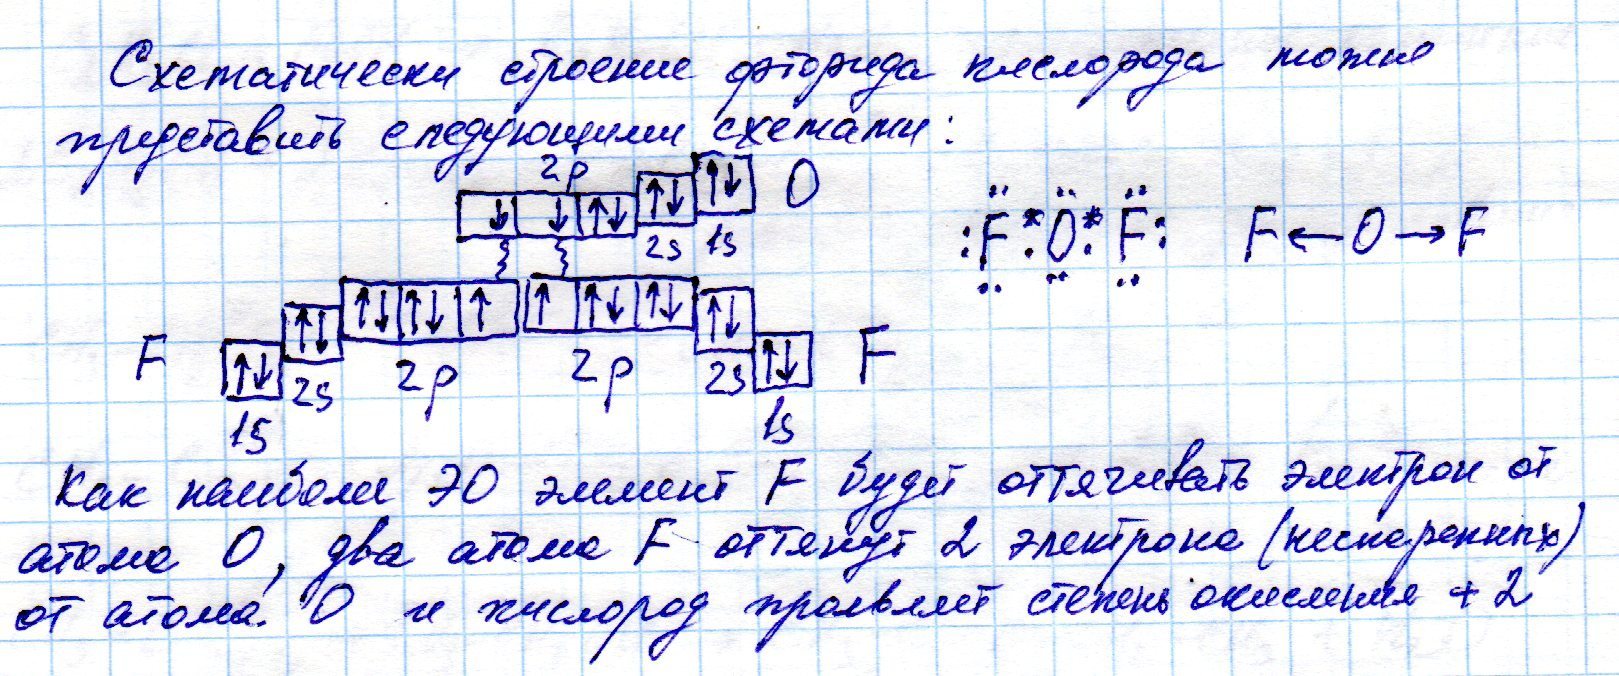 Схематически строение фторида кислорода можно
представить следующими схемами:
2p
O
2s 1s
:F * O * F: F ← O → F
F
1s
2s
2p
2p
2s
1s
F
Как наиболее ЭО элемент F будет оттягивать электрон от
атома O, два атома F оттянут 2 электрона (неспаренных)
от атома O и кислород проявляет степень окисления +2